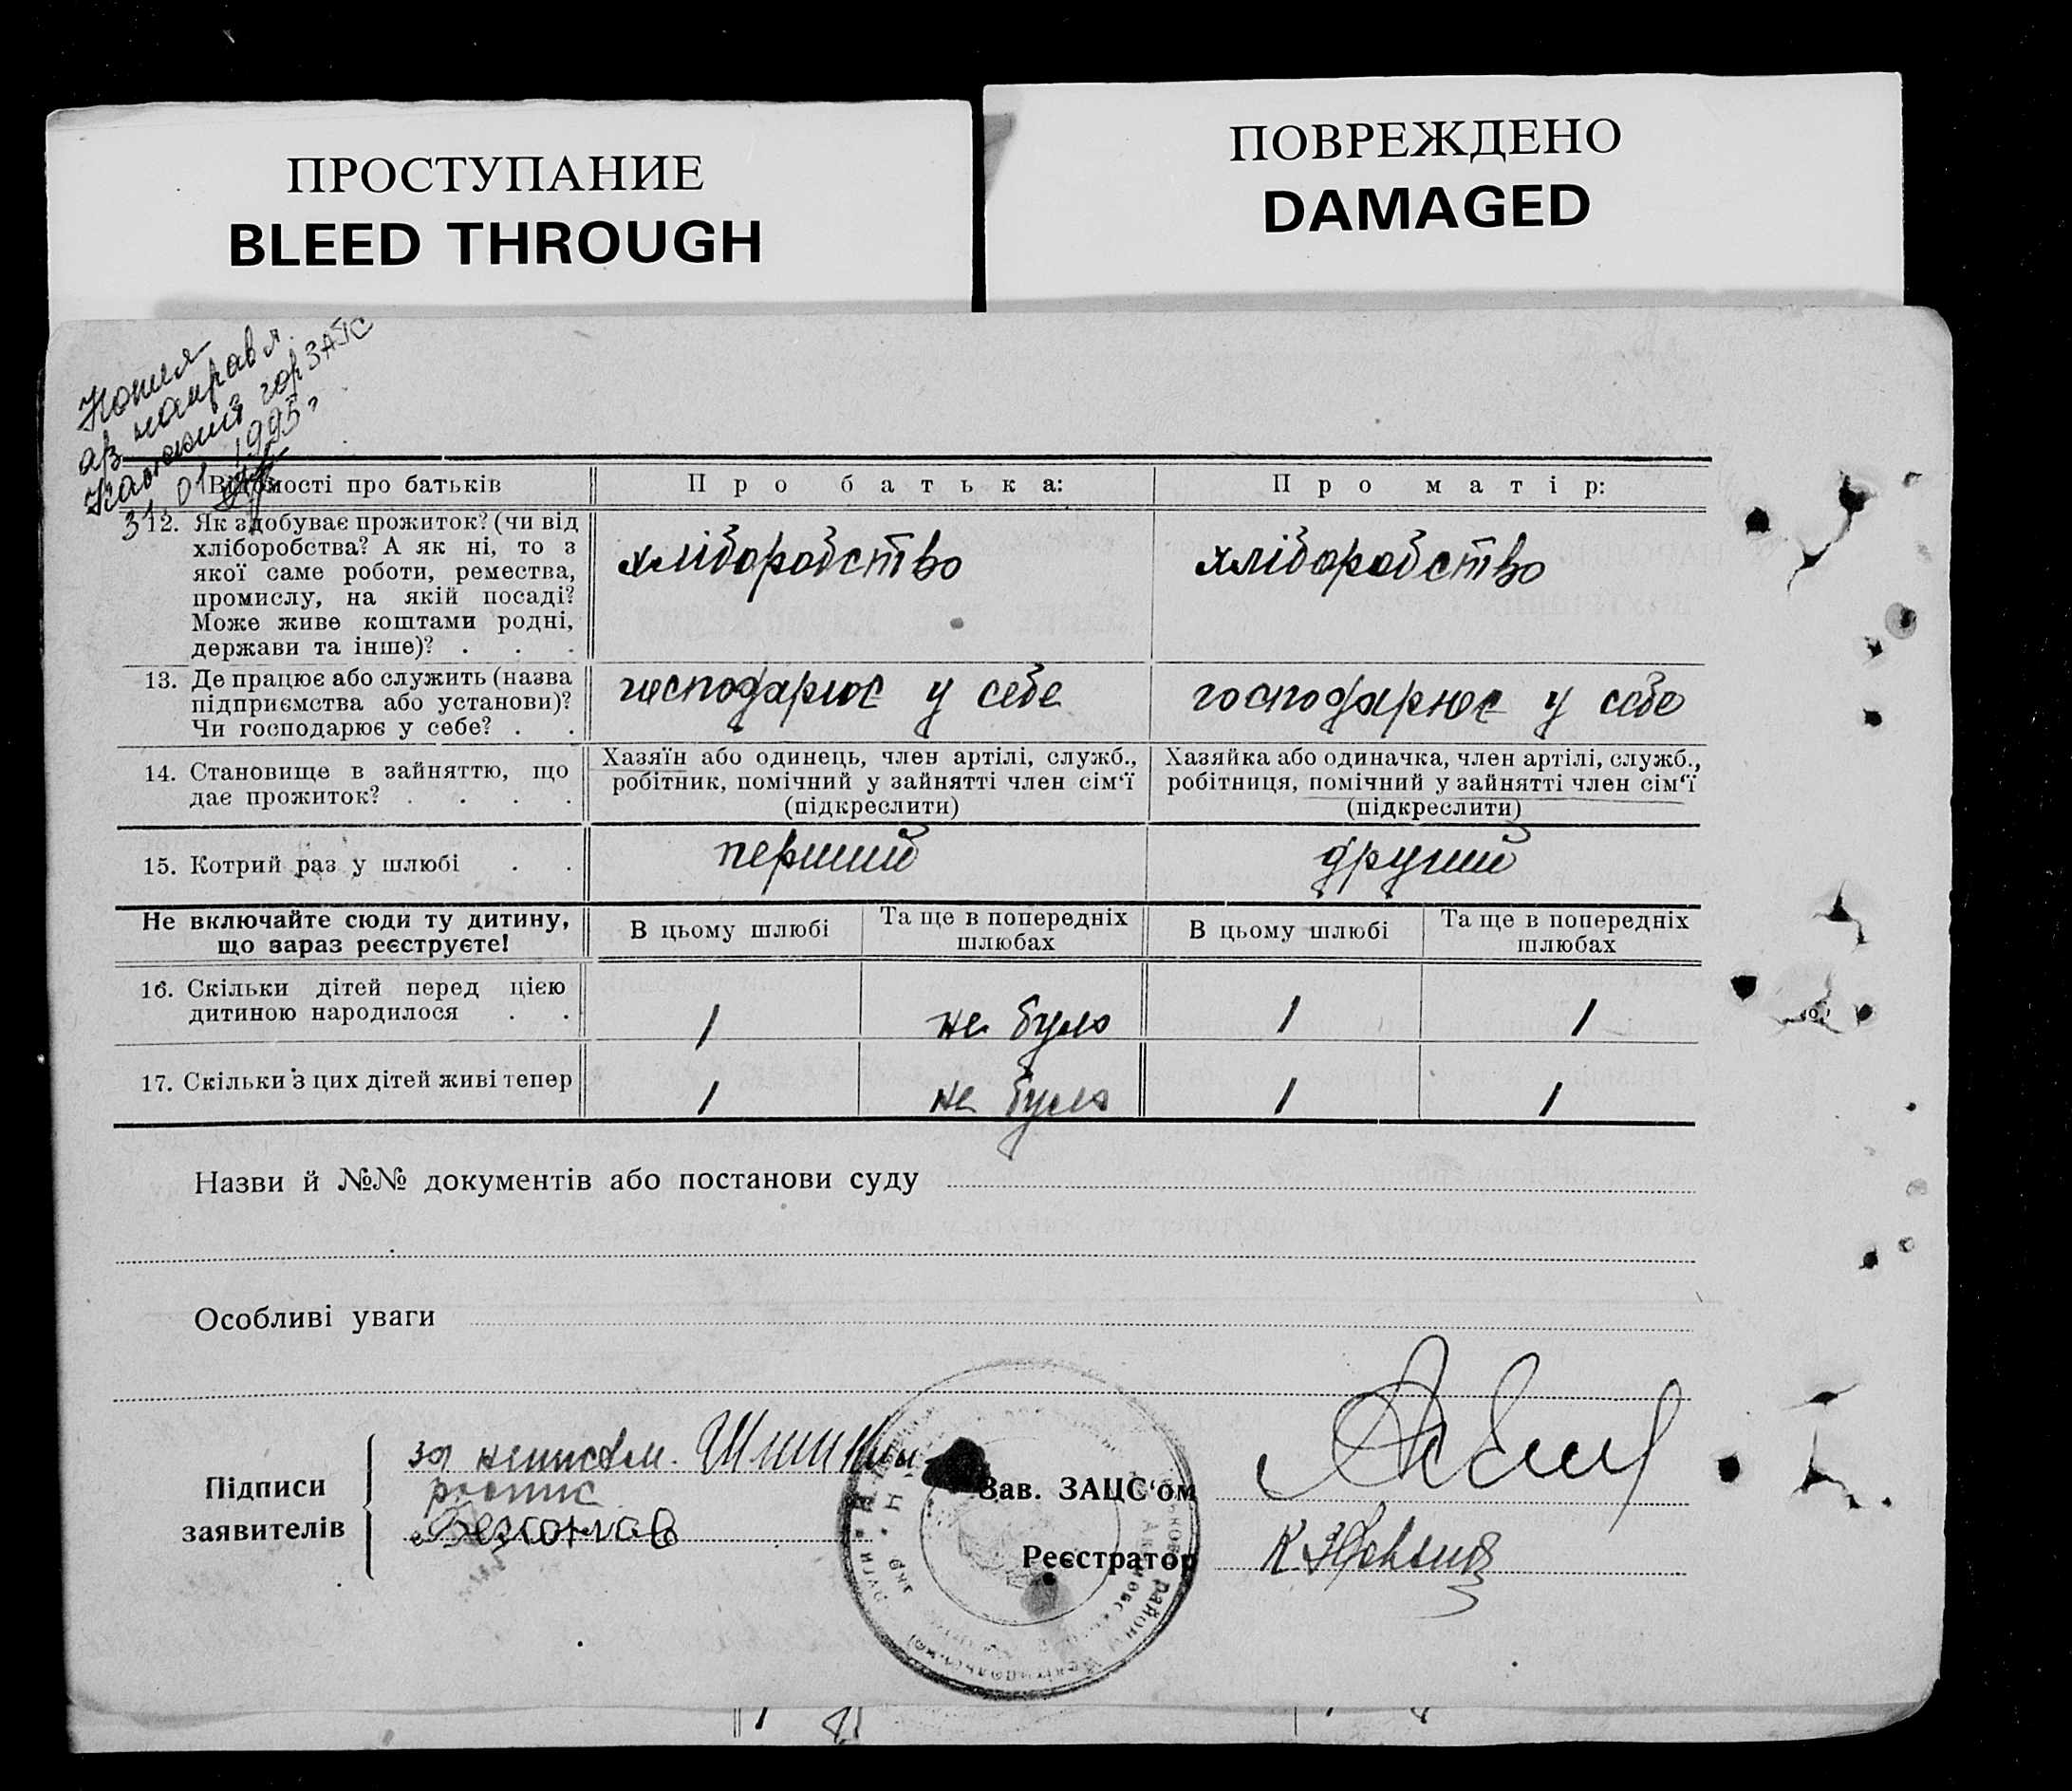 ПРОСТУПАНИЕ
BLEED THROUGH
ПОВРЕЖДЕНО
DAMAGED
Копия
аз направл
горЗАГС
31.01 1995г
Відомості про батьків
Про батька:
Про матір:
12. Як здобуває прожиток? (чи від
хліборобства? А як ні, то з
якої саме роботи, ремества,
промислу, на якій посаді?
Може живе коштами родні,
держави та інше)? . . .
хліборобство
хліборобство
13. Де працює або служить (назва
підприємства або установи)?
Чи господарює у себе? . .
господарює у себе
господарює у себе
14. Становище в зайняттю, що
дає прожиток? . . . .
Хазяїн або одинець, член артілі, служб.,
робітник, помічний у зайнятті член сім'ї
(підкреслити)
Хазяйка або одиначка, член артілі, служб.,
робітниця, помічний у зайнятті член сім'ї
(підкреслити)
15. Котрий раз у шлюбі . .
перший
другий
Не включайте сюди ту дитину,
що зараз реєструєте!
В цьому шлюбі
Та ще в попередніх
шлюбах
В цьому шлюбі
Та ще в попередніх
шлюбах
16. Скільки дітей перед цією
дитиною народилося . .
1
не було
1
1
17. Скільки з цих дітей живі тепер
1
не було
1
1
Назви й №№ документів або постанови суду
Особливі уваги
Підписи
заявителів
за неписьм.
роспис
Зав. ЗАЦС'ом
Реєстратор